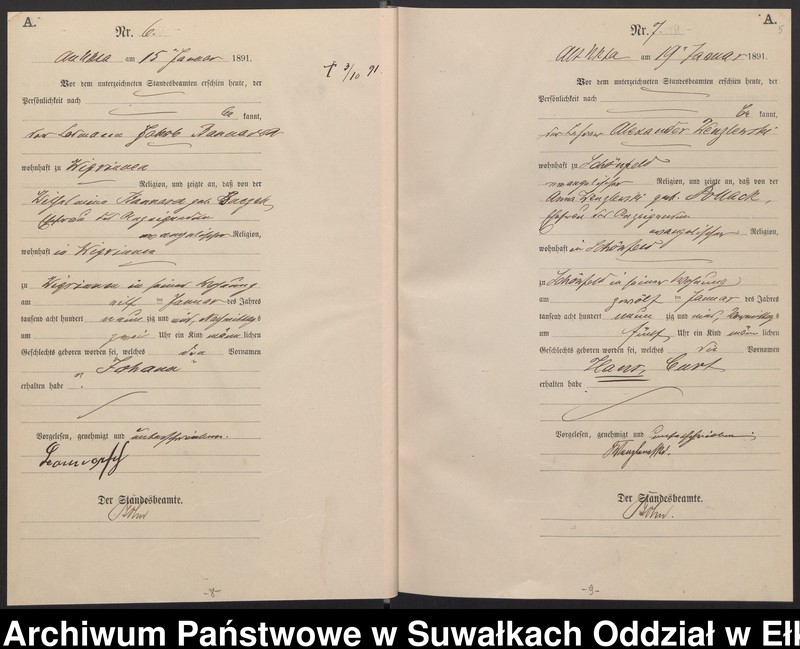 A.
Nr. 6.
am 15 Januar 1891.
Vor dem unterzeichneten Standesbeamten erschien heute, der
Persönlichkeit nach
kannt,
Jakob
wohnhaft zu
Religion, und zeigte an, daß von der
geb.
Ehefrau des Anzeigenden
evangelischer Religion,
wohnhaft in
zu in seiner Wohnung
am elf ten Januar des Jahres
tausend acht hundert neun zig und eins, Nachmittags
um zwei Uhr ein Kind männ lichen
Geschlechts geboren worden sei, welches den Vornamen
Johann
erhalten habe
Vorgelesen, genehmigt und unterschrieben.
Der Standesbeamte.
-8-
† 3/10 91.
A.
5
Nr. 7.
Alt Ukta am 19 Januar 1891.
Vor dem unterzeichneten Standesbeamten erschien heute, der
Persönlichkeit nach
be kannt,
der Lehrer Alexander
wohnhaft zu Schönfeld
evangelischer Religion, und zeigte an, daß von der
Anna geb. Pollack,
Ehefrau des Anzeigenden
evangelischer Religion,
wohnhaft in Schönfeld
zu Schönfeld in seiner Wohnung
am zwölf ten Januar des Jahres
tausend acht hundert neun zig und eins, Vormittags
um fünf Uhr ein Kind männ lichen
Geschlechts geboren worden sei, welches die Vornamen
Hans, Curt
erhalten habe
Vorgelesen, genehmigt und unterschrieben
Der Standesbeamte.
-9-
Archiwum Państwowe w Suwałkach Oddział w Ełk